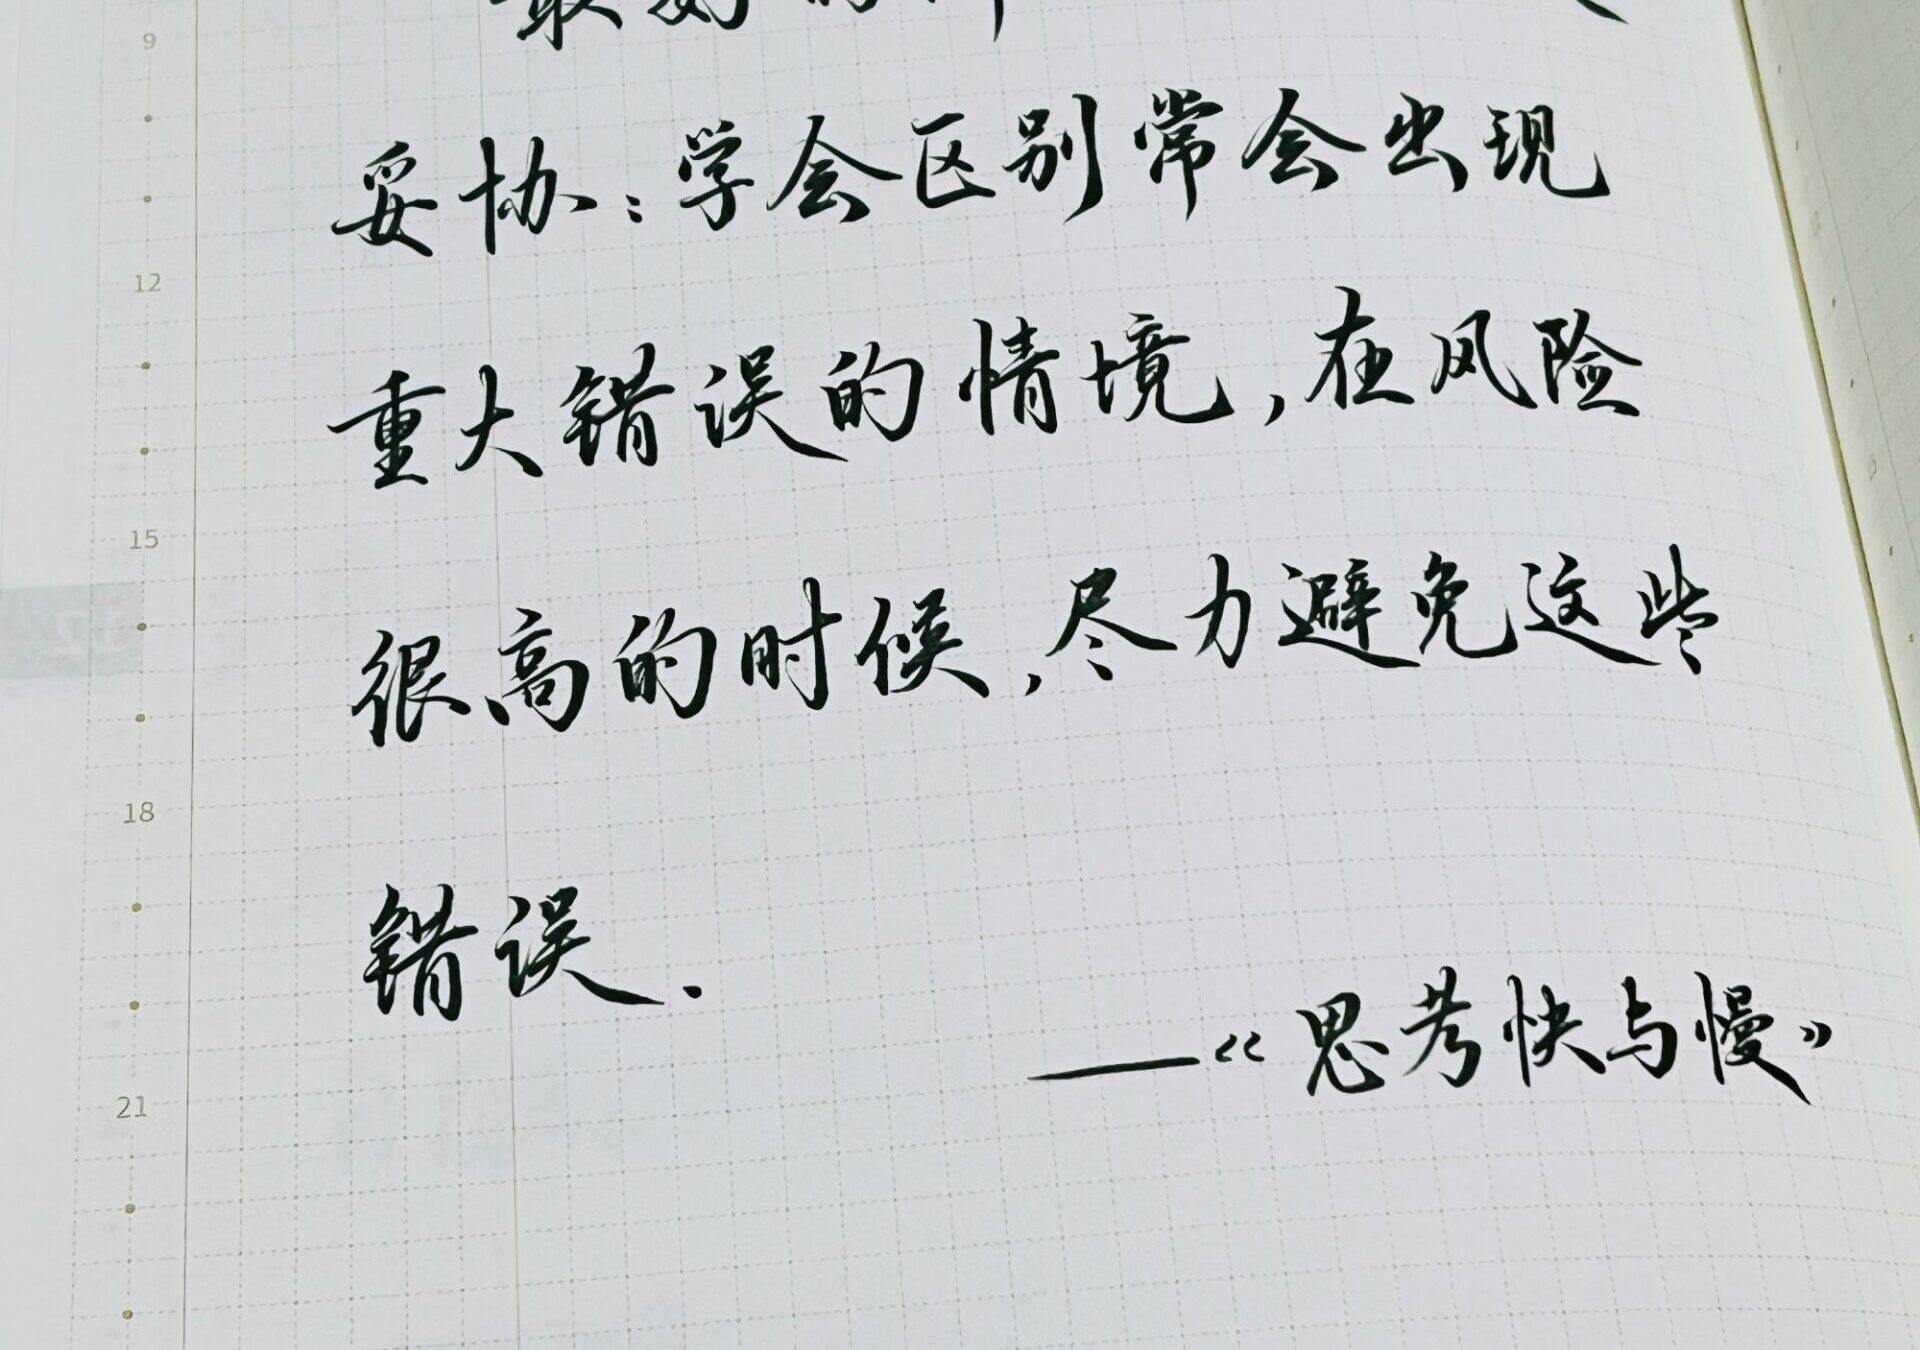 最好的
妥协：学会区别常会出现
重大错误的情境，在风险
很高的时候，尽力避免这些
错误.
——《思考快与慢》
9
12
15
18
21
12